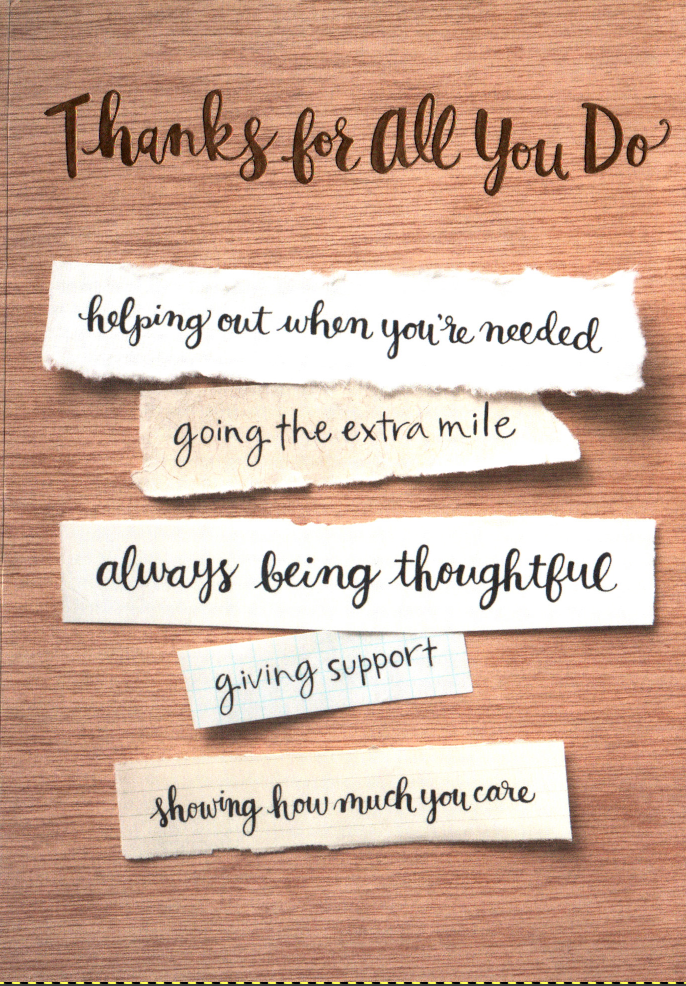 Thanks for All You Do
helping out when you're needed
going the extra mile
always being thoughtful
giving support
showing how much you care